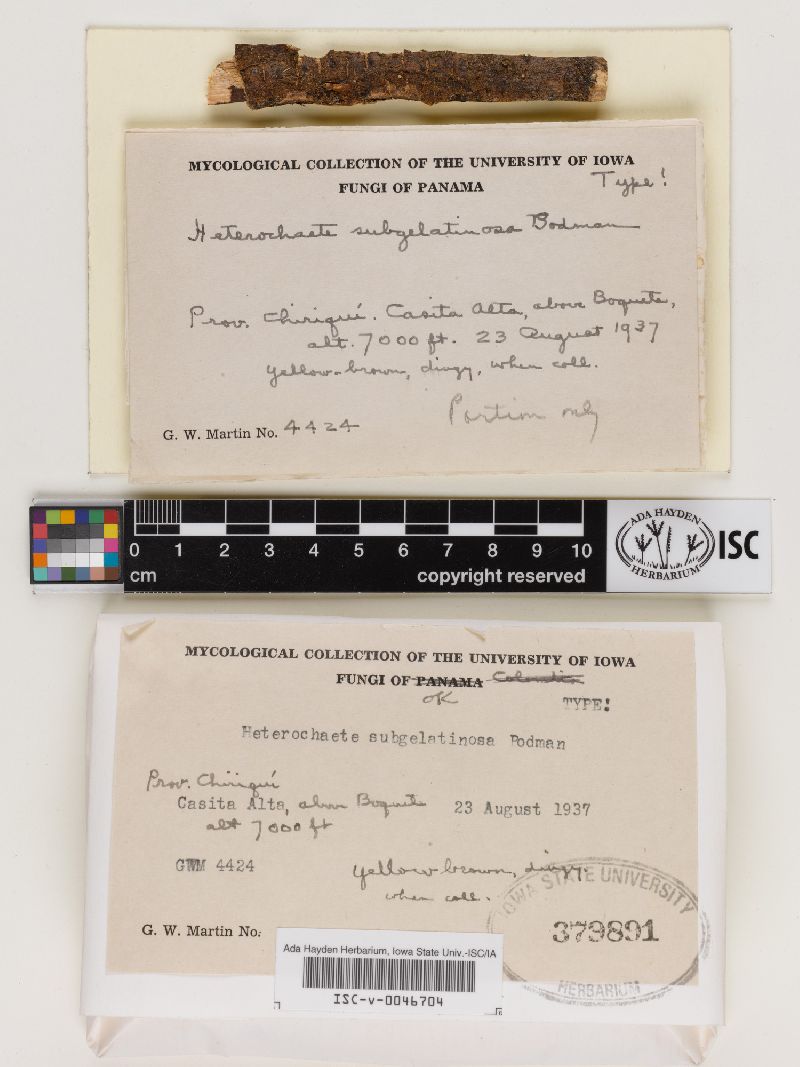 MYCOLOGICAL COLLECTION OF THE UNIVERSITY OF IOWA
FUNGI OF PANAMA
Type!
Heterochaete subgelatinosa Bodman
Prov. Chiriquí. Casita Alta, above Boquete,
alt. 7000 ft. 23 August 1937
yellow-brown, dingy, when coll.
Portion only
G. W. Martin No. 4424
0 1 2 3 4 5 6 7 8 9 10
cm
copyright reserved
ADA HAYDEN
HERBARIUM
ISC
MYCOLOGICAL COLLECTION OF THE UNIVERSITY OF IOWA
FUNGI OF PANAMA Colombia
OK
TYPE!
Heterochaete subgelatinosa Podman
Prov. Chiriquí
Casita Alta, above Boquete 23 August 1937
alt 7000 ft
GWM 4424
yellow brown, dingy.
when coll.
G. W. Martin No.
IOWA STATE UNIVERSITY
379891
HERBARIUM
Ada Hayden Herbarium, Iowa State Univ.-ISC/IA
ISC-v-0046704